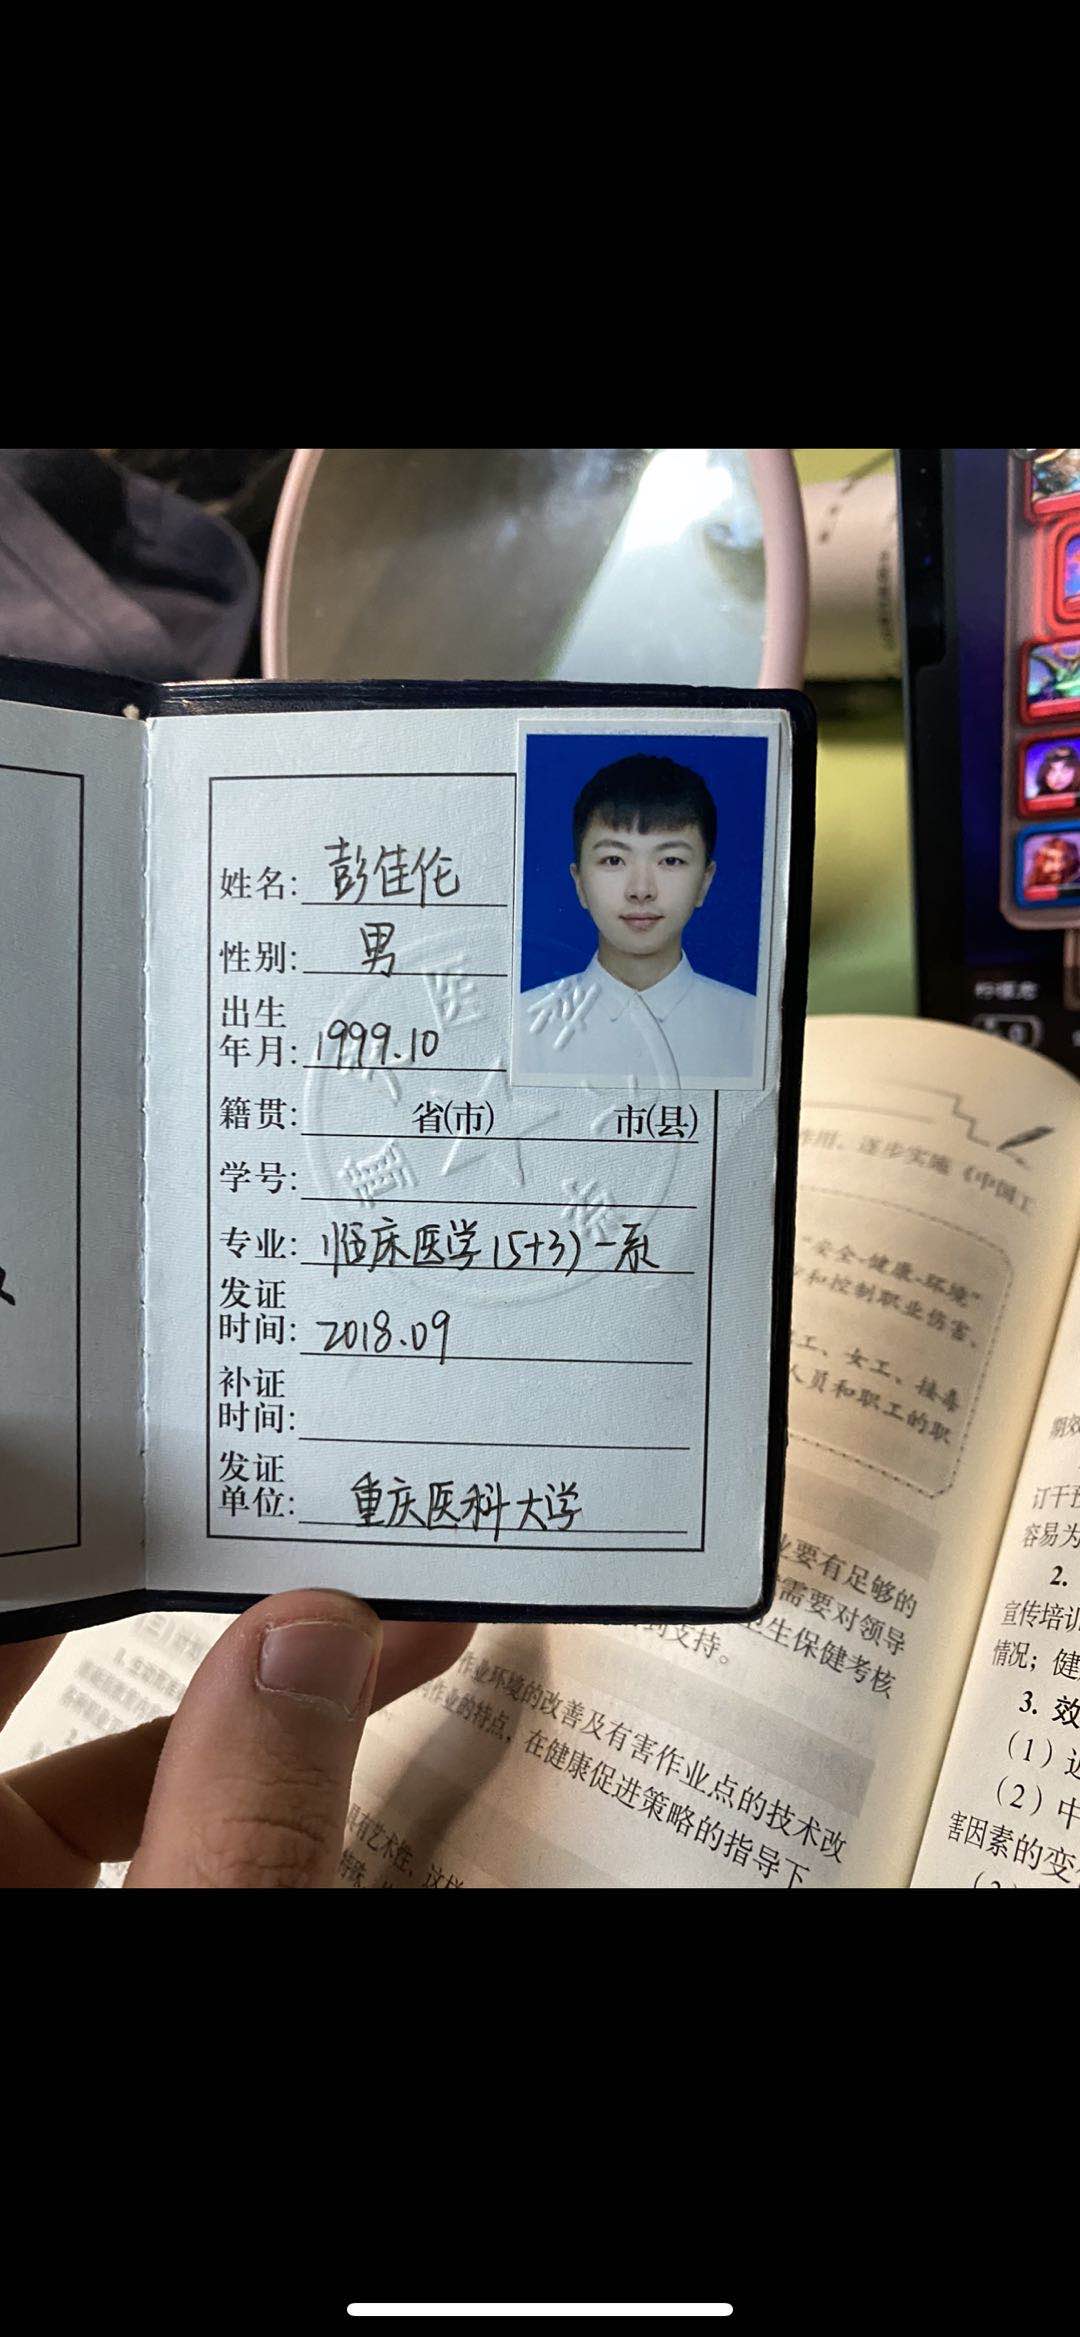 姓名: 彭佳伦
性别: 男
出生
年月: 1999.10
籍贯: 省(市) 市(县)
学号:
专业: 临床医学(5+3)一系
发证
时间: 2018.09
补证
时间:
发证
单位: 重庆医科大学
作用，逐步实施《中国工
"安全-健康-环境"
和控制职业伤害、
工、女工、接毒
人员和职工的职
业要有足够的
需要对领导
卫生保健考核
到支持。
作业环境的改善及有害作业点的技术改
作业的特点，在健康促进策略的指导下
具有艺术性，这样
期效
订干预
容易为
2.
宣传培训
情况；健
3. 效
(1)
(2) 中
害因素的变